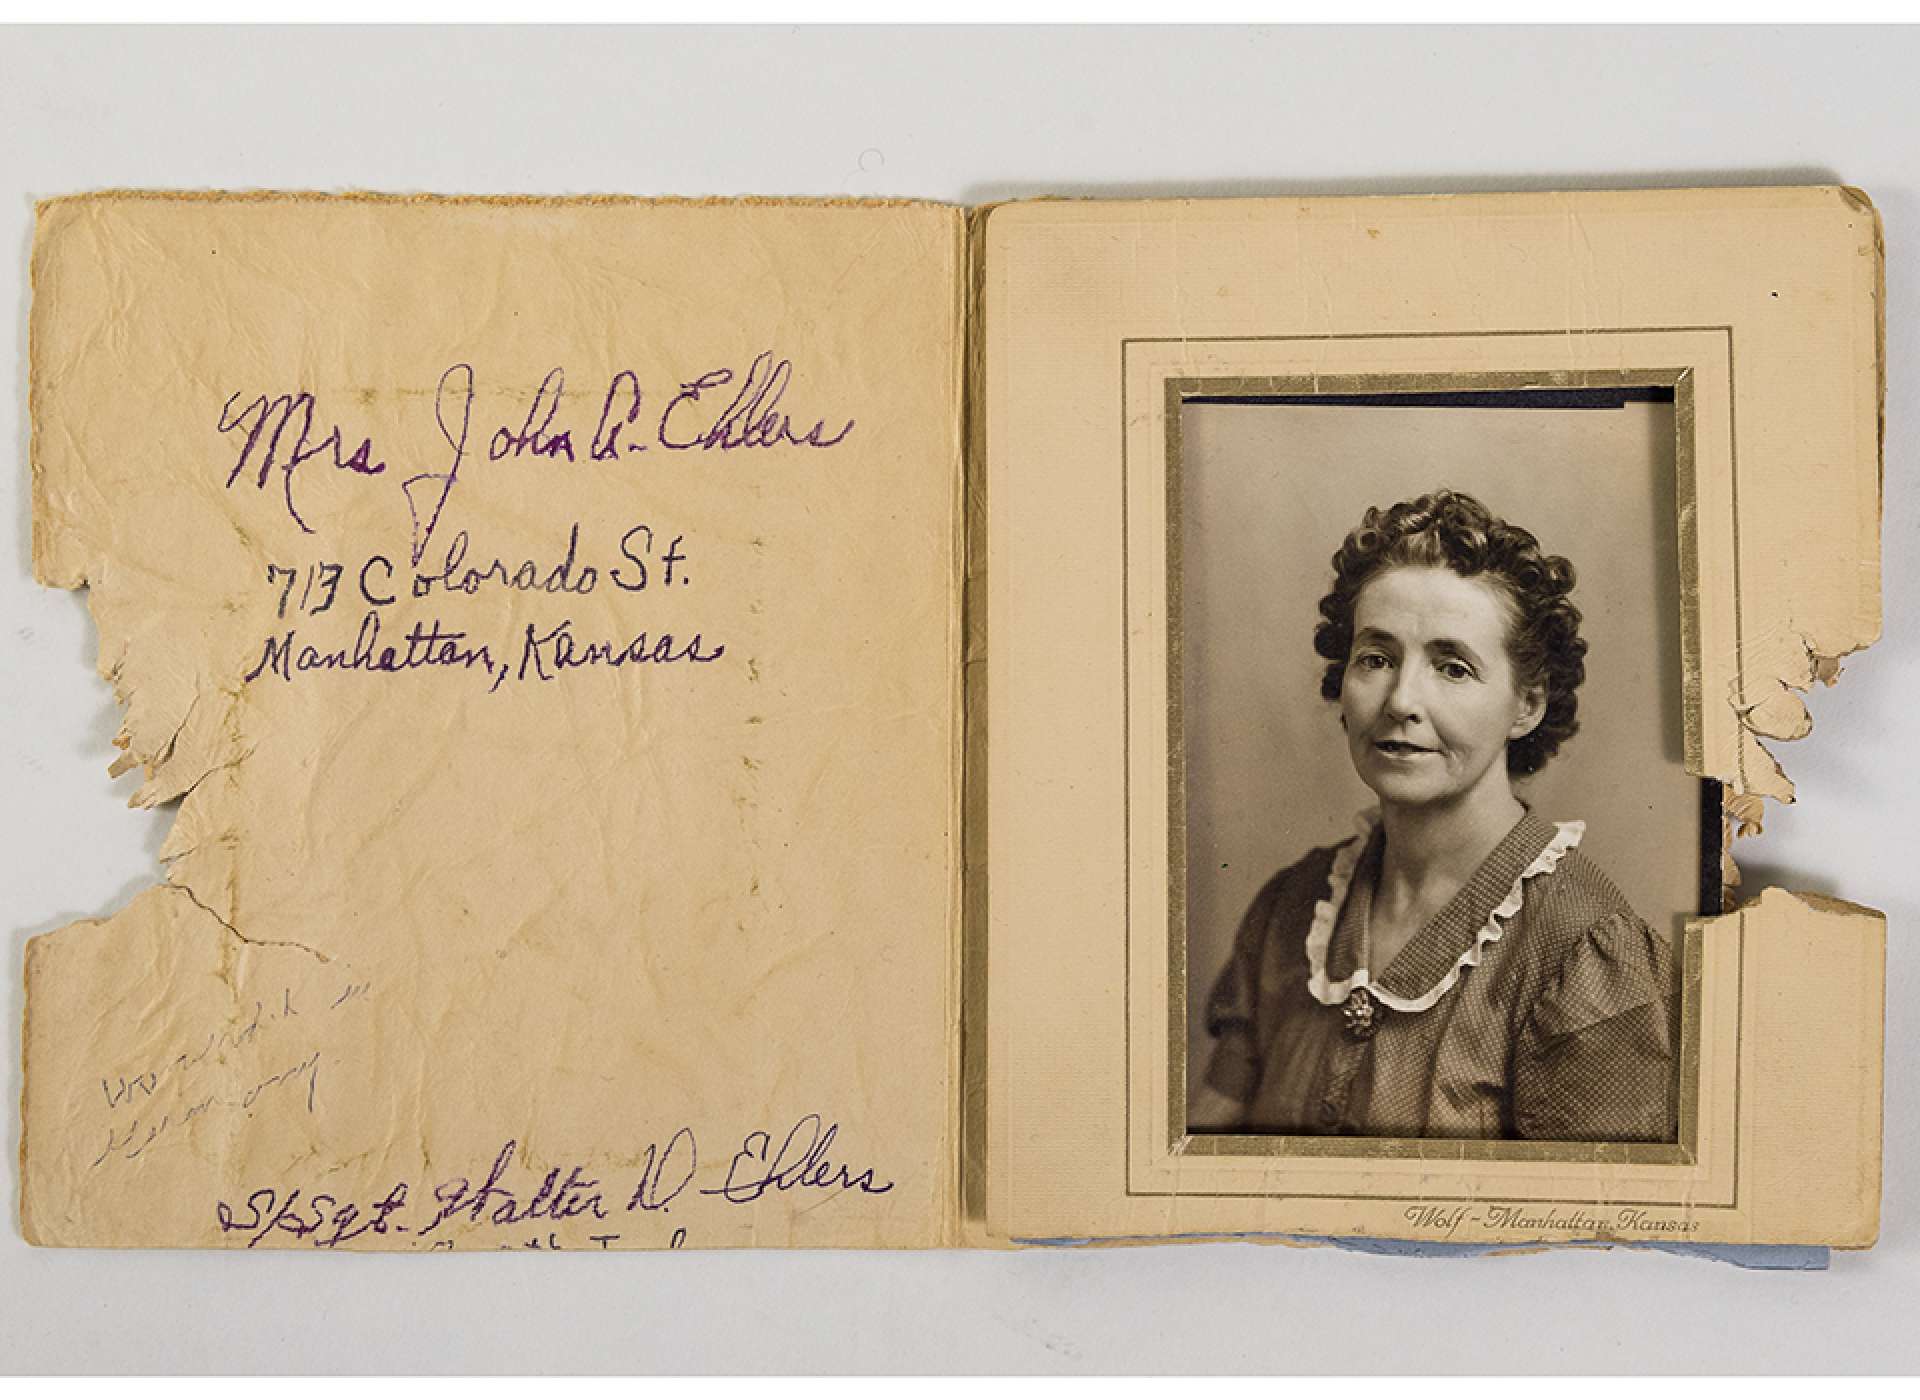 Mrs John A. Ehlers
713 Colorado St.
Manhattan, Kansas
S/Sgt. Walter D. Ehlers
Wolf - Manhattan, Kansas